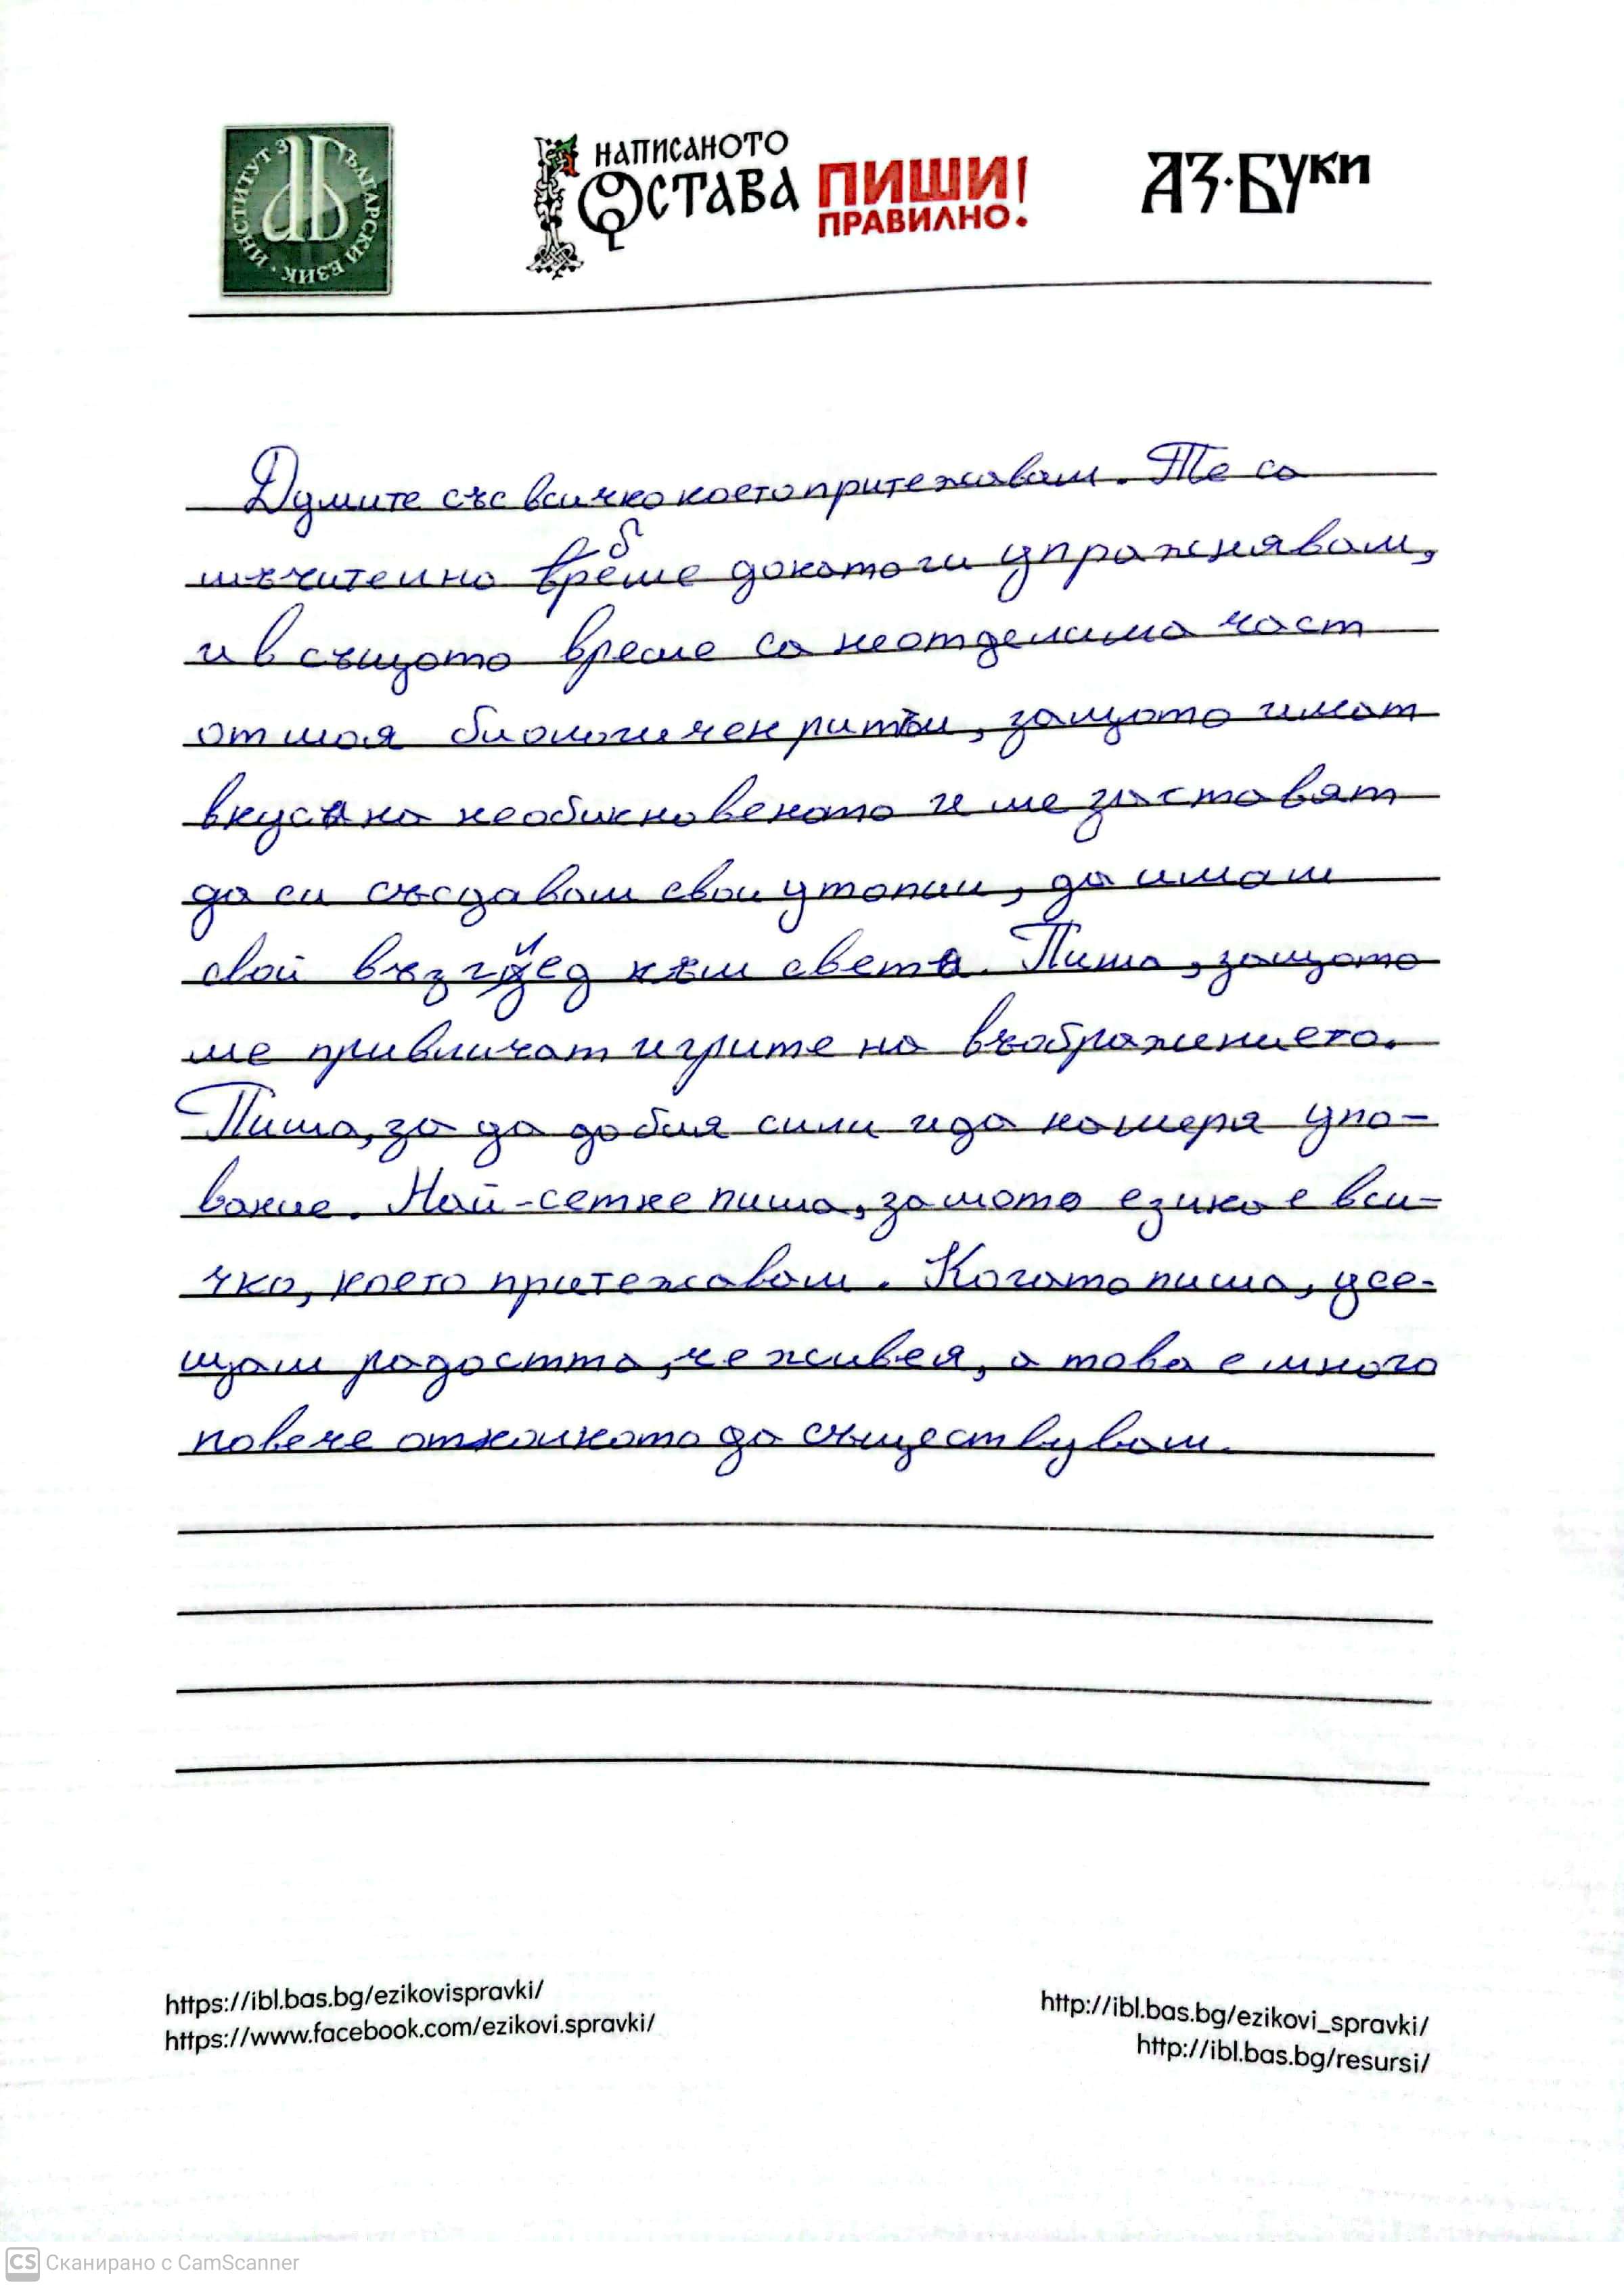 ИНСТИТУТ ЗА БЪЛГАРСКИ ЕЗИК
НАПИСАНОТО
ОСТАВА
ПИШИ!
ПРАВИЛНО!
АЗ·БУКИ
Думите със всичко което притежавам. Те са
мъчително бреме докато ги упражнявам,
и в същото време са неотделима част
от моя биологичен ритъм, защото имат
вкуса на необикновеното и ме заставят
да си създавам свои утопии, да имам
свой възглед към света. Пиша, защото
ме привличат игрите на въображението.
Пиша, за да добия сили и да намеря упо-
вание. Най-сетне пиша, защото езика е вси-
чко, което притежавам. Когато пиша, усе-
щам радостта, че живея, а това е много
повече отколкото да съществувам.
https://ibl.bas.bg/ezikovispravki/
https://www.facebook.com/ezikovi.spravki/
http://ibl.bas.bg/ezikovi_spravki/
http://ibl.bas.bg/resursi/
CS Сканирано с CamScanner